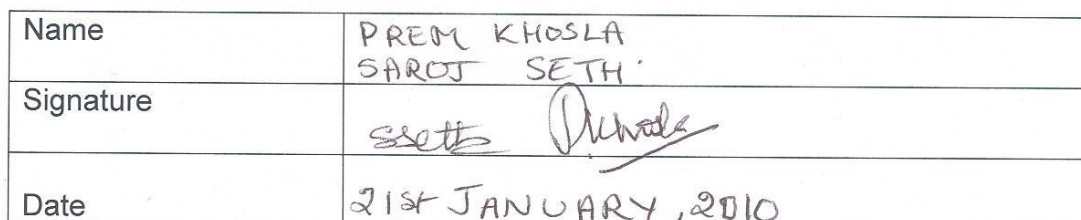 Name PREM KHOSLA
SAROJ SETH
Signature
SSeth
Date 21st JANUARY, 2010